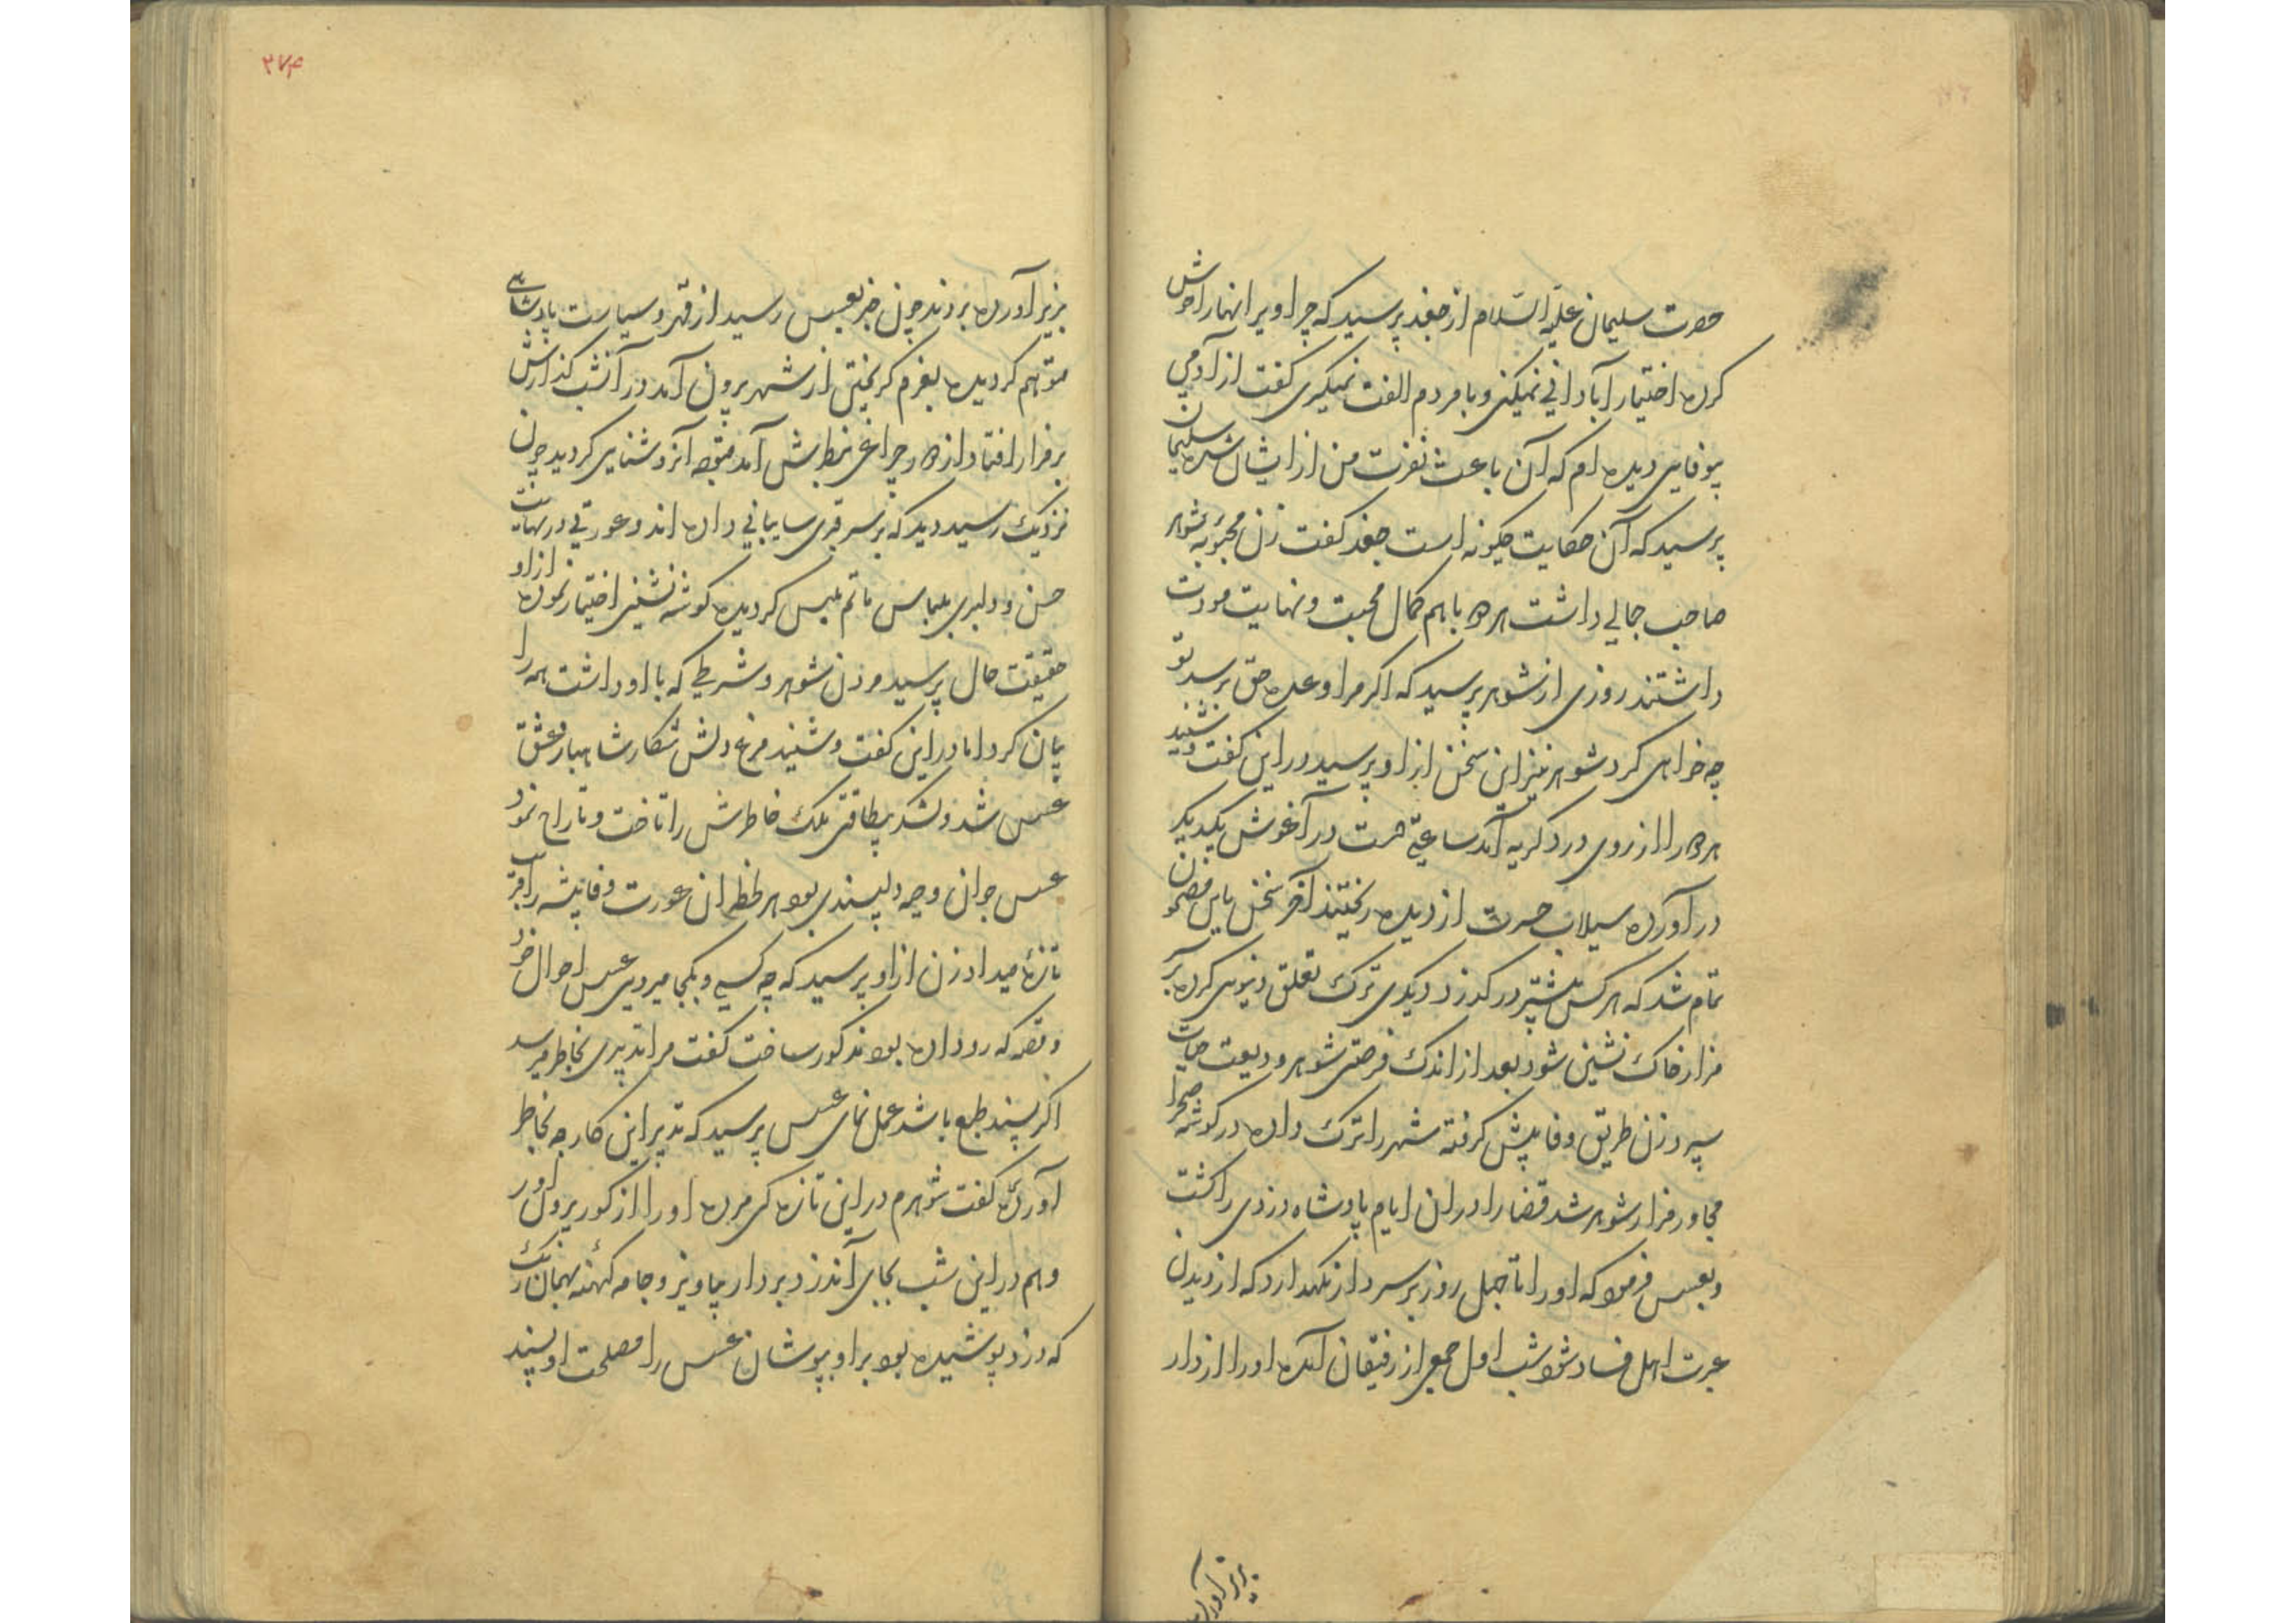 حضرت سلیمان علیه السلام از جغد پرسید که چرا ویرانها را خوش
کرده اختیار آبادانی نمیکنی و با مردم الفت نمیگیری گفت از آدمی
بیوفایی دیده ام که آن باعث نفرت من از ایشان شده سلیمان
پرسید که آن حکایت چگونه است جغد گفت زن محبوبه شوهر
صاحب جمالی داشت هردو باهم کمال محبت و نهایت مودت
داشتند روزی از شوهر پرسید که اکر مرا وعده حق برسد تو
چه خواهی کرد شوهر نیز این سخن از او پرسید در این گفت و شنید
هردو را از روی درد گریه آمد ساعتی دست در آغوش یکدیگر
در آورده سیلاب حسرت از دیده ریختند آخر سخن باین مضمون
تمام شد که هرکس پیشتر درگذرد دیگری ترک تعلق دنیوی کرده بر
مزار خاک نشین شود بعد از اندک فرصتی شوهر ودیعت حیات
سپرد زن طریق وفا پیش گرفته شهر را ترک داده در گوشه صحرا
مجاور مزار شوهر شد قضا را در ان ایام پادشاه دزدی را کشت
و بعسس فرمود که او را تا چهل روز بر سر دار نگهدارد که از دیدن
عبرت اهل فساد شود شب اول جمعی از رفیقان آمده او را از دار
بزیر آورده
۲۷۴
بزیر آورده بردند چون خبر بعسس رسید از قهر و سیاست پادشاهی
متوهم گردیده بعزم گریختن از شهر بیرون آمد در آنشب گذارش
بر مزار افتاد از دور چراغی بنظرش آمد متوجه آنروشنایی گردید چون
نزدیک رسید دید که بر سر قبری سایبانی زده اند و عورتی در نهایت
حسن و دلبری بلباس ماتم ملبس گردیده گوشه نشینی اختیار نموده از او
حقیقت حال پرسید مردن شوهر و شرطی که با او داشت همه را
بیان کرد اما در این گفت و شنید مرغ دلش شکار شاهباز عشق
عسس شد و لشکر بیطاقتی ملک خاطرش را تاخت و تاراج نمود
عسس جوان وجیه دلپسندی بود هر لحظه ان عورت وفاپیشه را فریب
تازه میداد زن از او پرسید که چه کسی و بکجا میروی عسس احوال خود
و قصه که رو داده بود مذکور ساخت گفت مرا تدبیری بخاطر میرسد
اکر پسند طبع باشد عمل نمای عسس پرسید که تدبیر این کار چه بخاطر
آورده گفت شوهرم در این تازه کی مرده او را از گور بیرون آور
و هم در این شب بجای آندزد بر دار بیاویز و جامه کهنه بهمان رنگ
که دزد پوشیده بود بر او بپوشان عسس را مصلحت او پسند